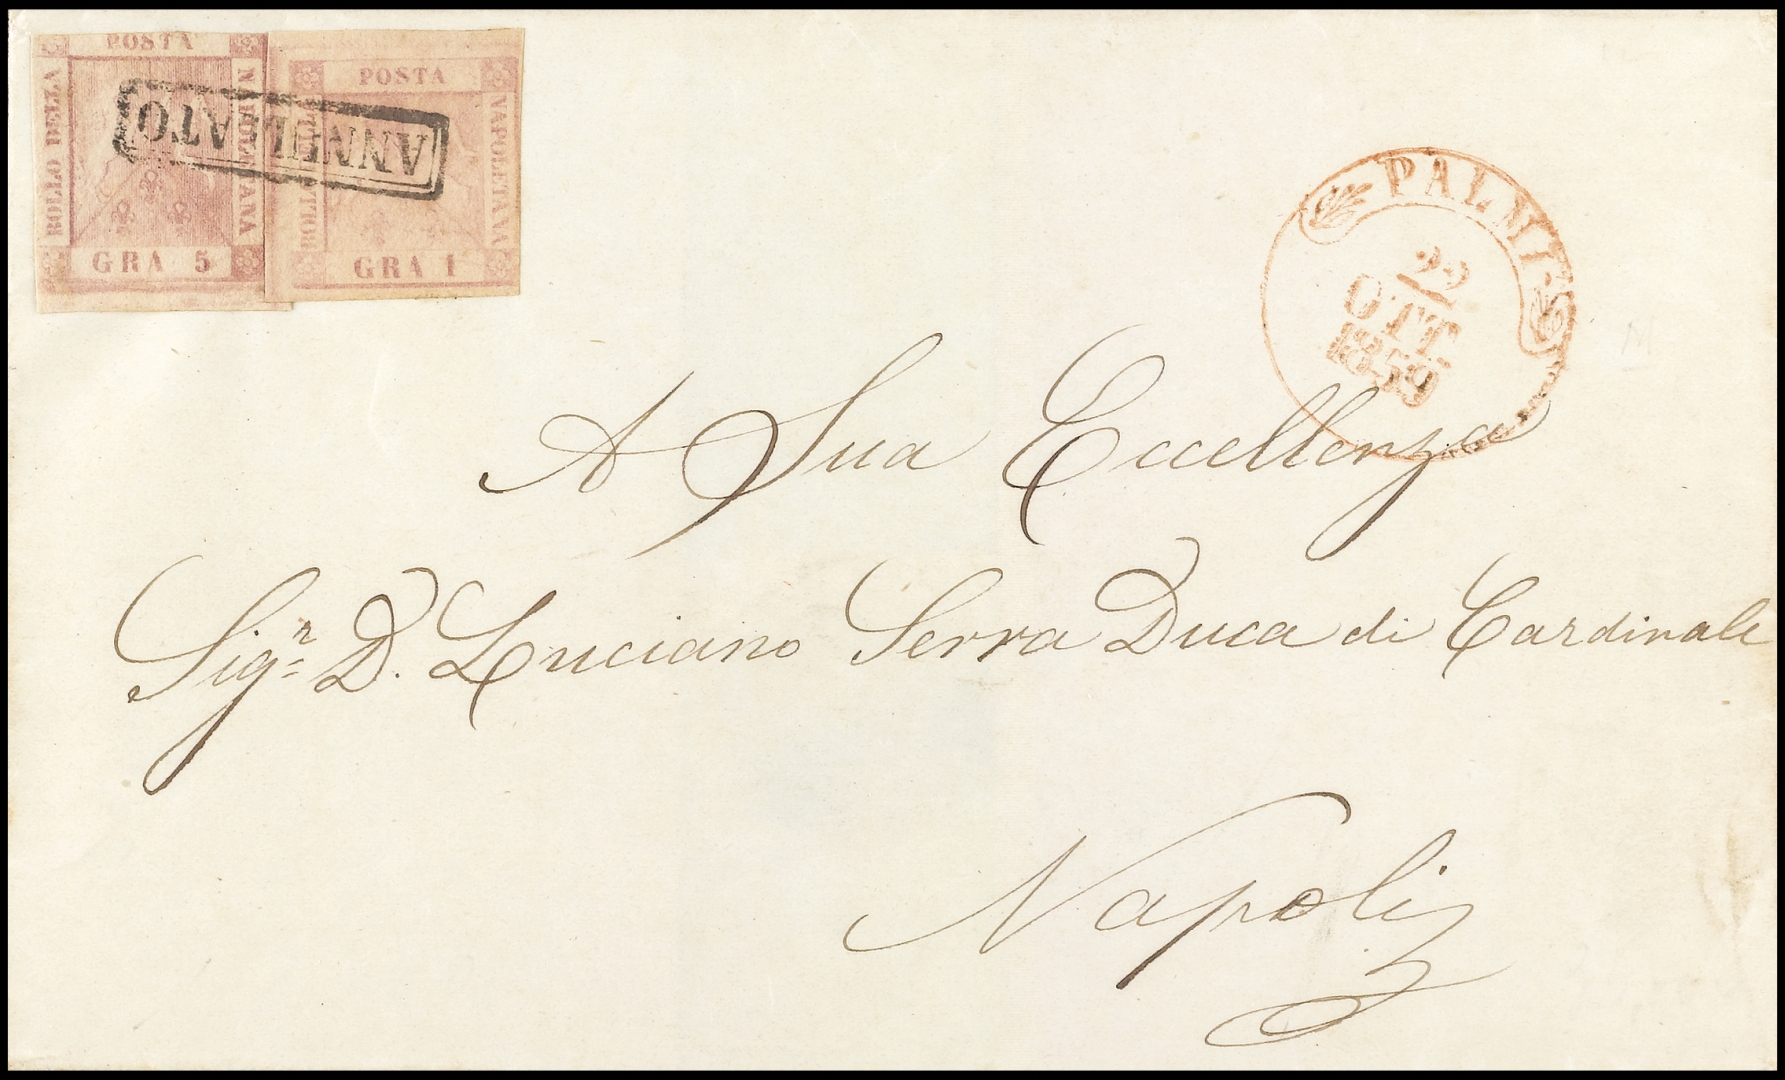 POSTA
BOLLO DELLA
NAPOLETANA
GRA 5
POSTA
NAPOLETANA
GRA 1
ANNULLATO
PALMI
22
OTT
1859
A Sua Eccellenza
Sigr. D. Luciano Serra Duca di Cardinale
Napoli